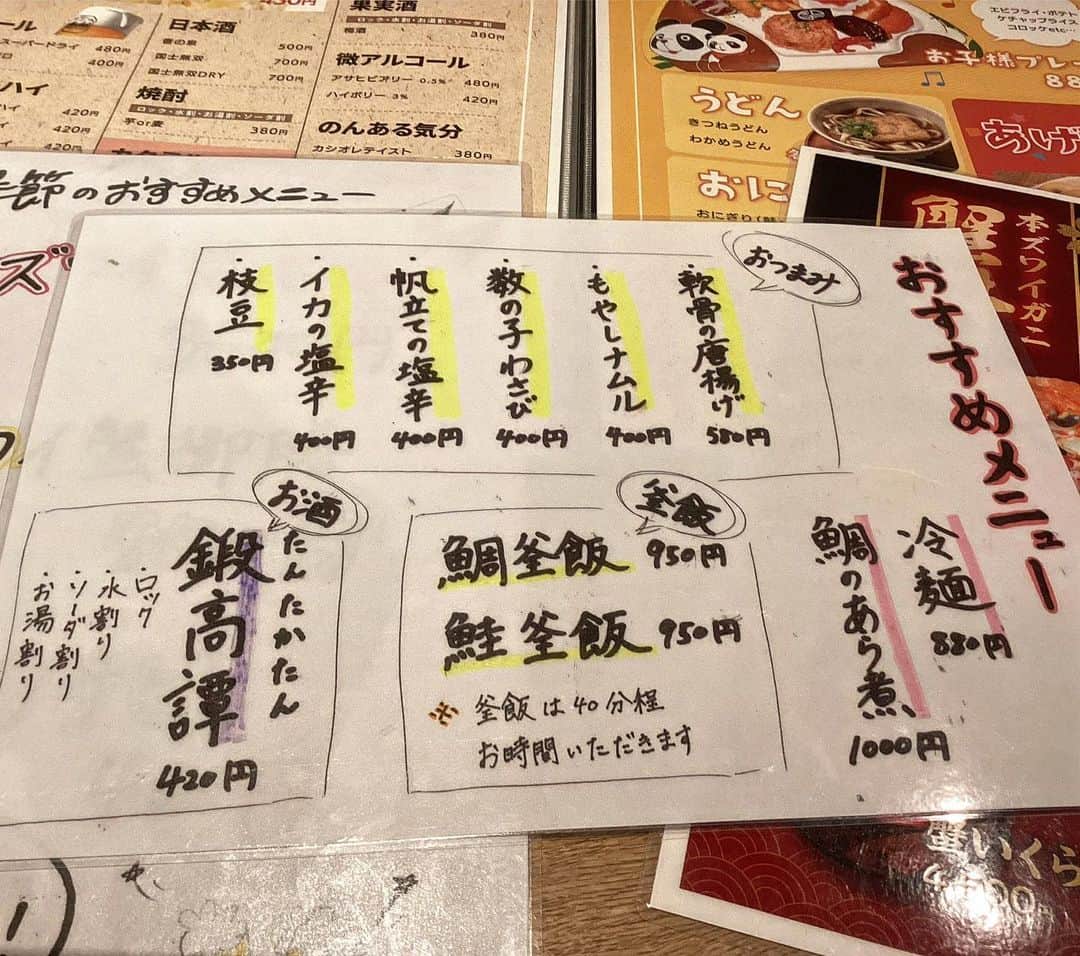 430円
日本酒
500円
国士無双
700円
国士無双DRY
700円
焼酎
ロック・水割・お湯割・ソーダ割
芋or麦
380円
スーパードライ
480円
400円
ハイ
420円
420円
420円
果実酒
ロック・水割・お湯割・ソーダ割
梅酒
380円
微アルコール
アサヒビアリー 0.5%
480円
ハイボリー 3%
420円
のんある気分
カシオレテイスト
380円
エビフライ・ポテト
ケチャップライス
コロッケetc…
お子様プレ
うどん
きつねうどん
わかめうどん
おに
おにぎり
あげ
本ズワイガニ
蟹
節のおすすめメニュー
おすすめメニュー
おつまみ
・軟骨の唐揚げ
580円
・もやしナムル
400円
・数の子わさび
400円
・帆立ての塩辛
400円
・イカの塩辛
400円
・枝豆
350円
冷麺
880円
鯛のあら煮
1000円
釜飯
鯛釜飯 950円
鮭釜飯 950円
※ 釜飯は40分程
お時間いただきます
お酒
たんたかたん
鍛高譚
420円
・ロック
・水割り
・ソーダ割り
・お湯割り
蟹いくら